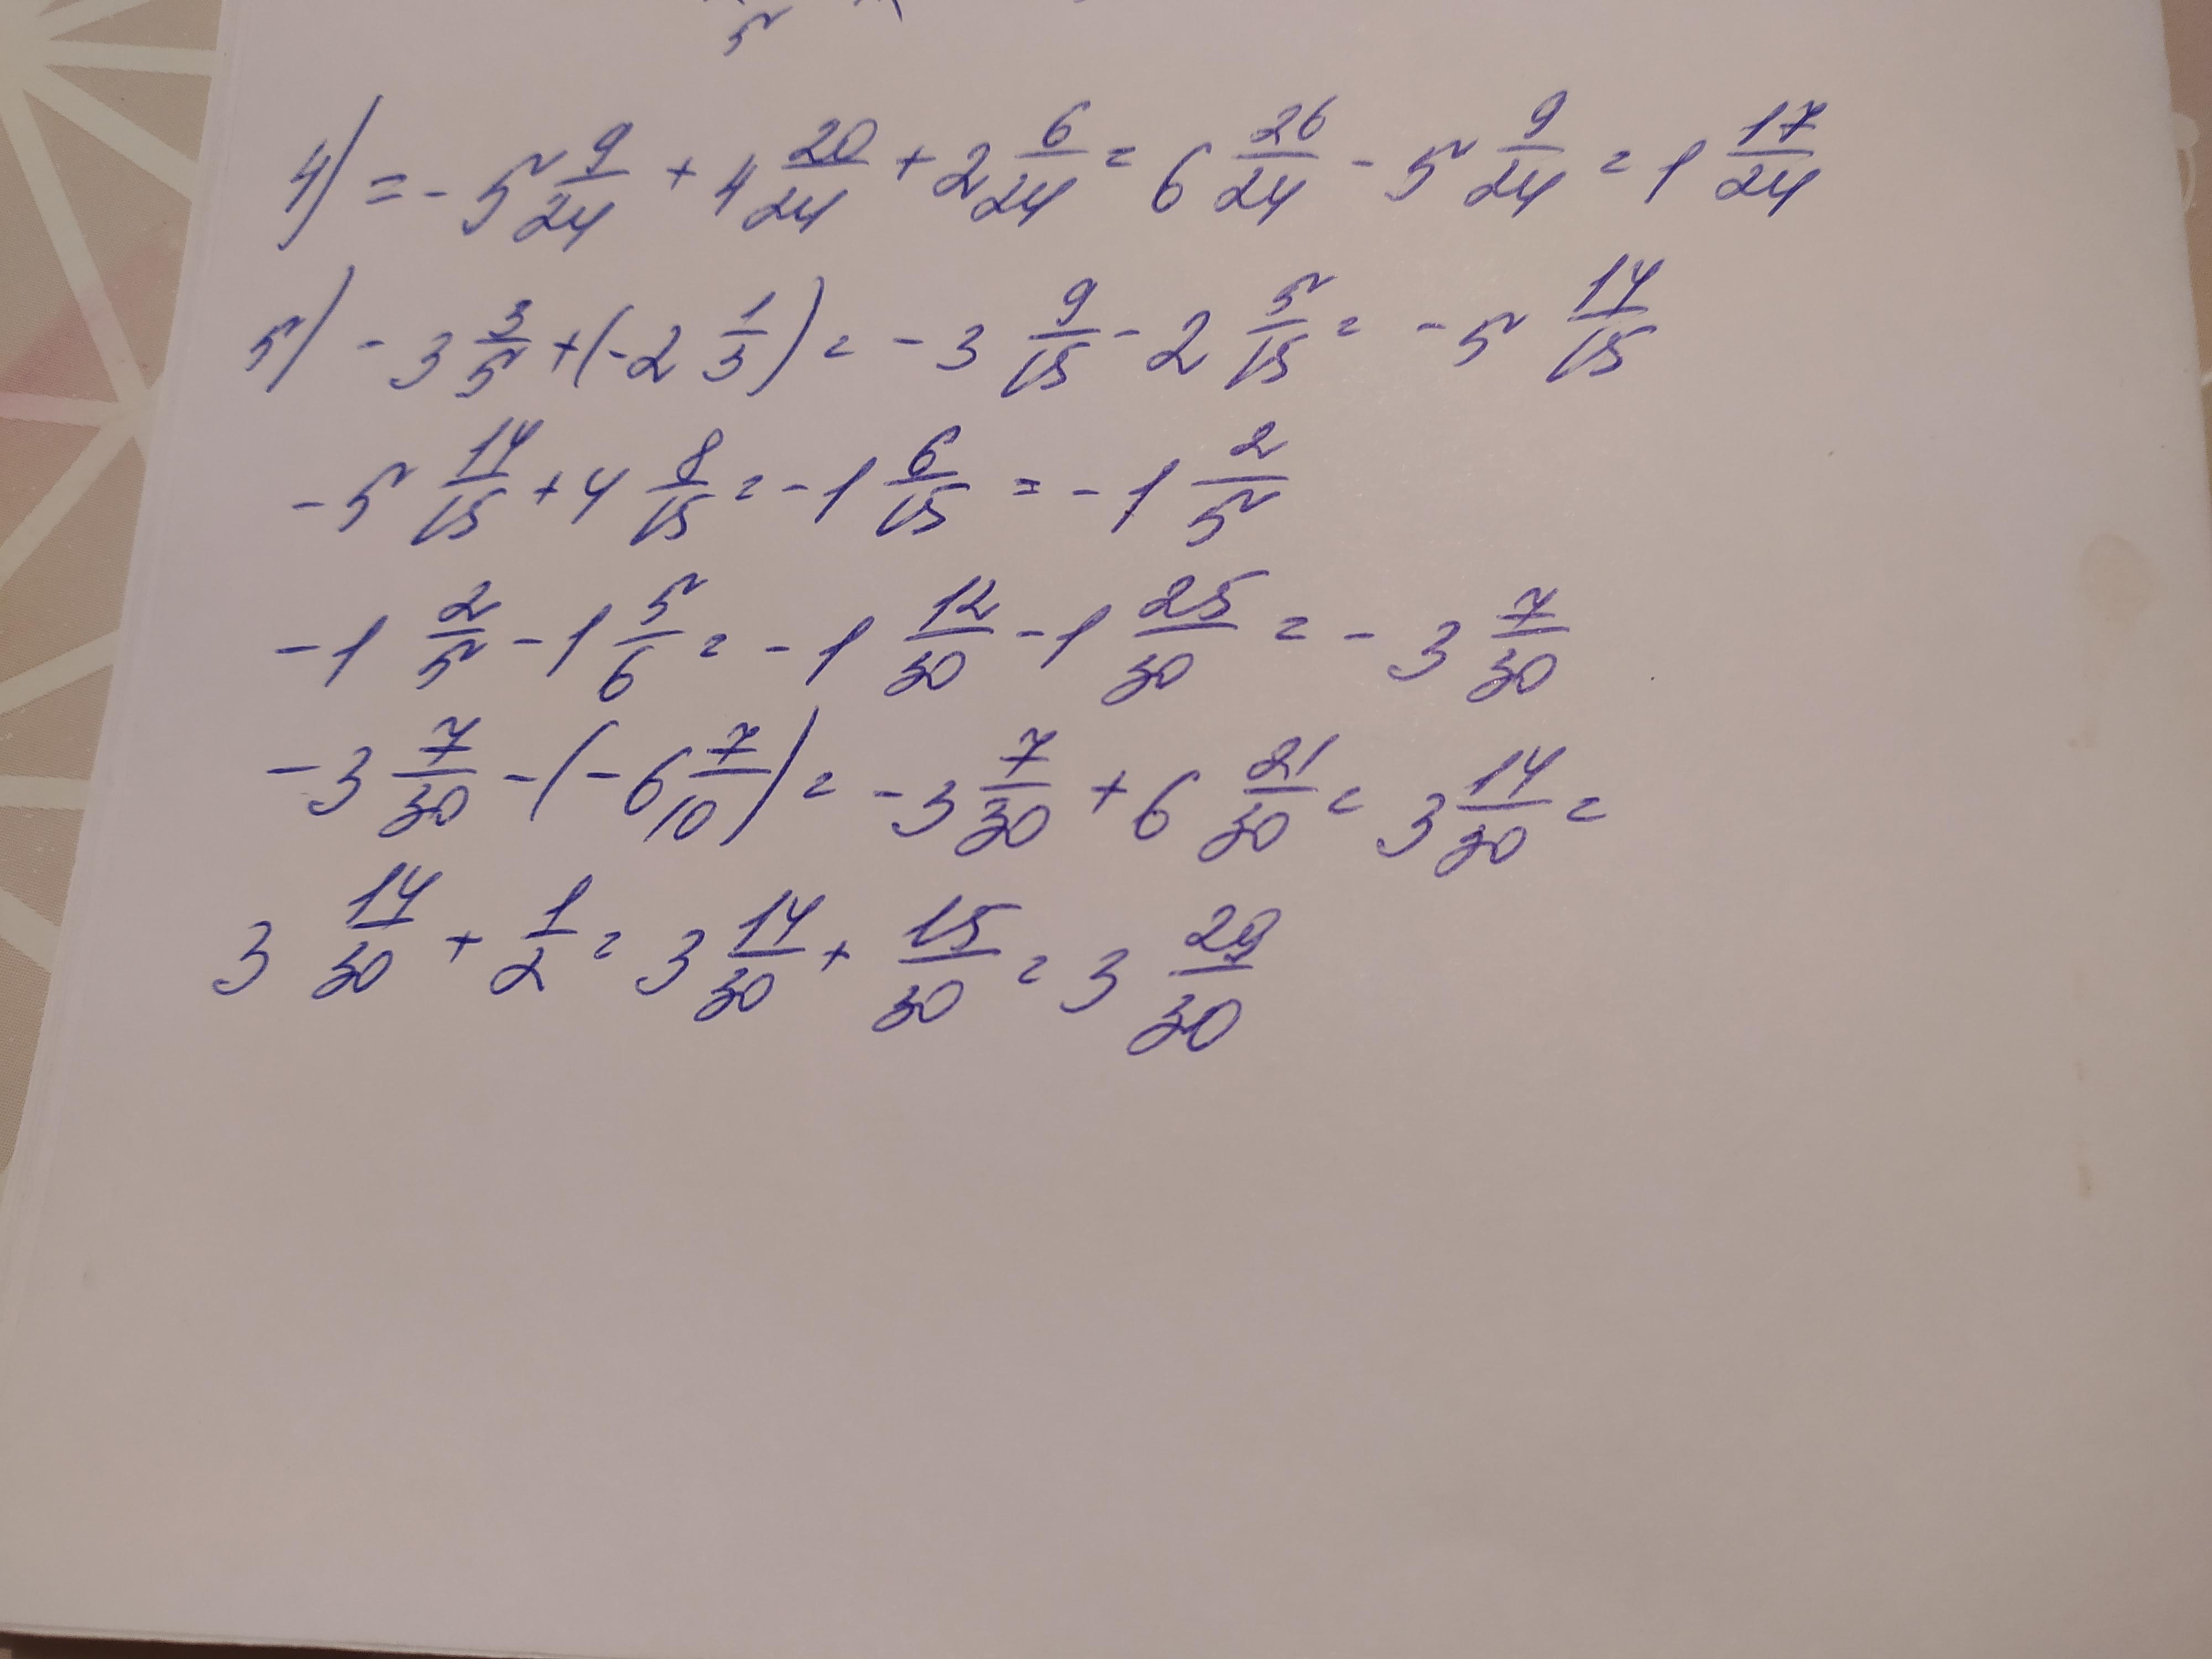 5
4) = - 5 9/24 + 4 20/24 + 2 6/24 = 6 26/24 - 5 9/24 = 1 17/24
5) - 3 3/5 + (-2 1/3) = - 3 9/15 - 2 5/15 = - 5 14/15
- 5 14/15 + 4 8/15 = - 1 6/15 = - 1 2/5
- 1 2/5 - 1 5/6 = - 1 12/30 - 1 25/30 = - 3 7/30
- 3 7/30 - (- 6 7/10) = - 3 7/30 + 6 21/30 = 3 14/30 =
3 14/30 + 1/2 = 3 14/30 + 15/30 = 3 29/30